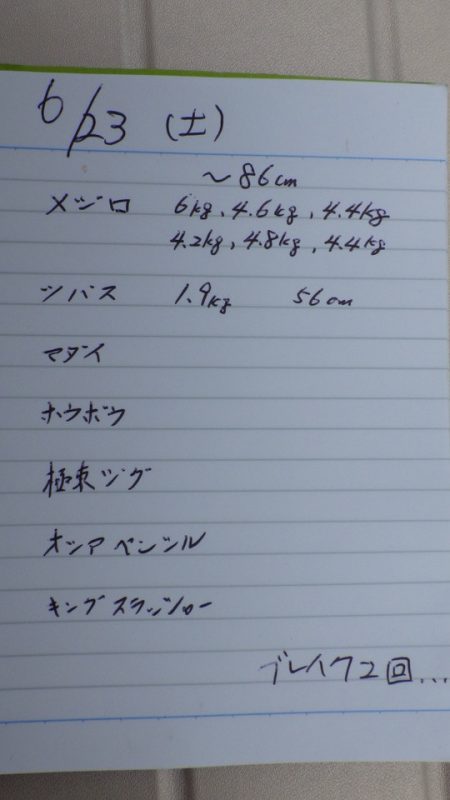 6/23 (土)
~86cm
メジロ 6kg, 4.6kg, 4.4kg
4.2kg, 4.8kg, 4.4kg
ツバス 1.9kg 56cm
マダイ
ホウボウ
極東ジグ
オシアペンシル
キングスラッシャー
ブレイク2回...